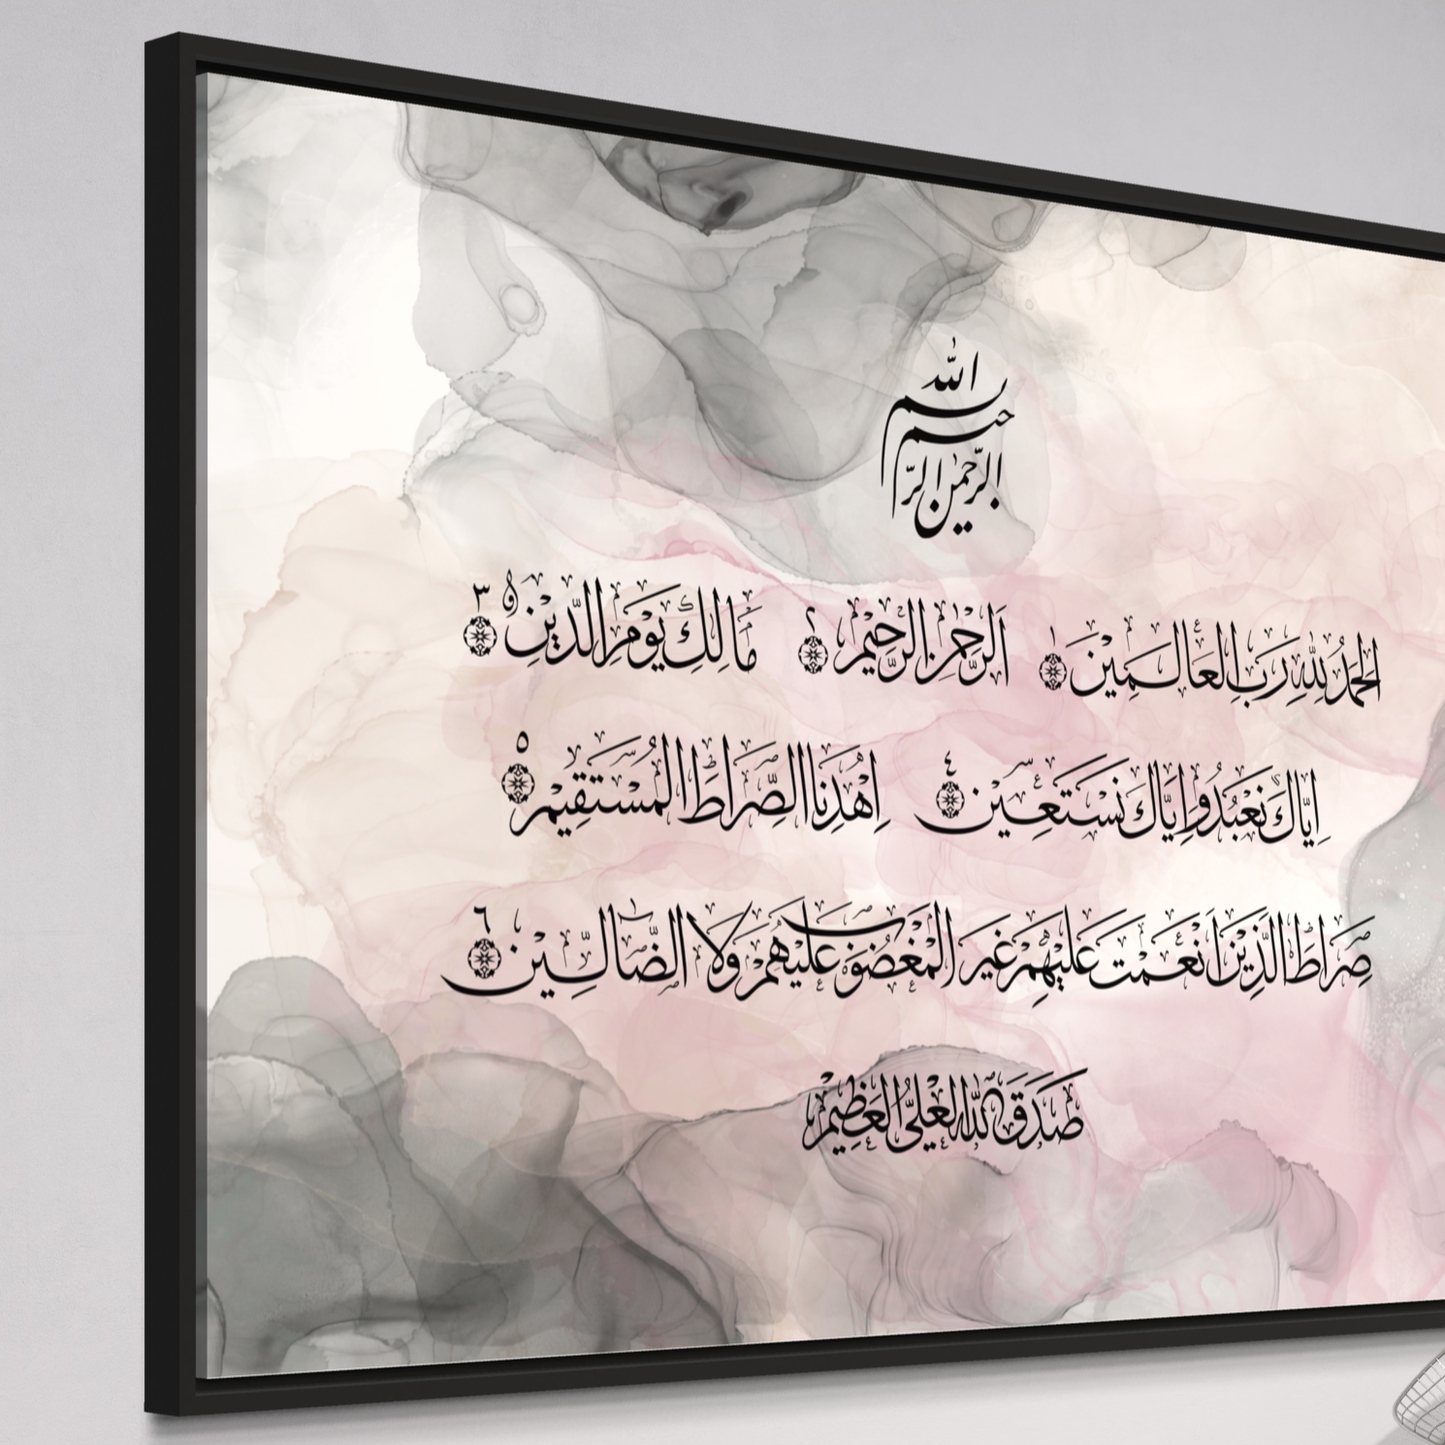 بسم الله الرحمن الرحيم
الحمدُ لِلّٰهِ رَبِّ العَالَمِيْنَ ١ اَلرَّحْمٰنِ الرَّحِيْمِ ٢ مَالِكِ يَوْمِ الدِّيْنِ ٣
اِيَّاكَ نَعْبُدُ وَاِيَّاكَ نَسْتَعِيْنُ ٤ اِهْدِنَا الصِّرَاطَ الْمُسْتَقِيْمَ ٥
صِرَاطَ الَّذِيْنَ اَنْعَمْتَ عَلَيْهِمْ غَيْرِ الْمَغْضُوْبِ عَلَيْهِمْ وَلَا الضَّالِّيْنَ ٦
صَدَقَ اللّٰهُ الْعَلِىُّ الْعَظِيْمُ